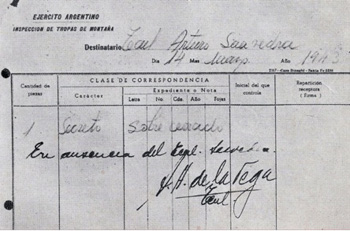 EJERCITO ARGENTINO
INSPECCION DE TROPAS DE MONTAÑA
Destinatario: Tcnl Arturo Saavedra
Dia 14 Mes Mayo Año 19
Cantidad de piezas
CLASE DE CORRESPONDENCIA
Carácter
Expediente o Nota
Letra No. Cde. Año Fojas
Inicial del que controla
Repartición receptora (Firma)
1 Secreto Sobre cerrado
En ausencia del
de la Vega
Tcnl